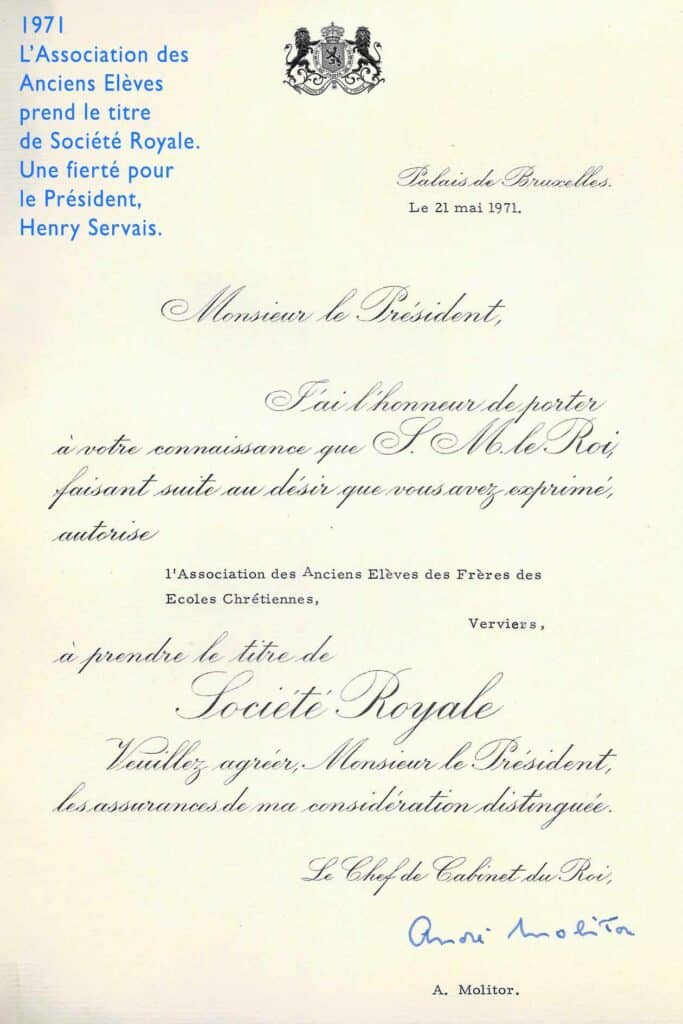 1971
L’Association des
Anciens Elèves
prend le titre
de Société Royale.
Une fierté pour
le Président,
Henry Servais.
Palais de Bruxelles.
Le 21 mai 1971.
Monsieur le Président,
J'ai l'honneur de porter
à votre connaissance que S. M. le Roi,
faisant suite au désir que vous avez exprimé,
autorise
l'Association des Anciens Elèves des Frères des
Ecoles Chrétiennes,
Verviers,
à prendre le titre de
Société Royale
Veuillez agréer, Monsieur le Président,
les assurances de ma considération distinguée.
Le Chef de Cabinet du Roi,
André Molitor
A. Molitor.